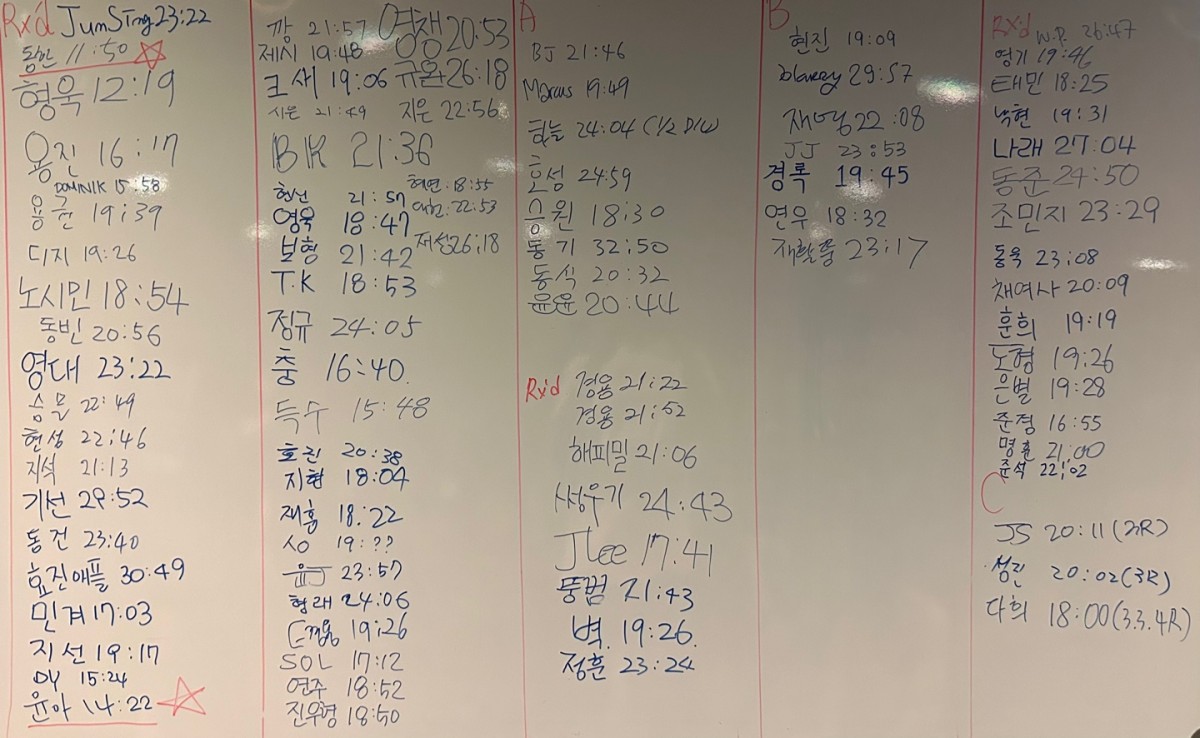 Rx'd JunSing 23:22
동한 11:50
형욱 12:19
용진 16:17
DOMINIK 15:58
용균 19:39
디지 19:26
노시민 18:54
동빈 20:56
영대 23:22
승물 22:49
현성 22:46
지석 21:13
기선 29:52
동건 23:40
효진애플 30:49
민겨 17:03
지선 19:17
DY 15:24
윤아 14:22
깡 21:57 영재 20:53
제시 19:48
크새 19:06 규완 26:18
시은 21:49 지은 22:56
BK 21:36
현선 21:57 혀연 18:55
영욱 18:47 22:53
보형 21:42 재성 26:18
T.K 18:53
정규 24:05
충 16:40.
득수 15:48
호진 20:38
지현 18:04
재홈 18:22
SO 19:??
윤J 23:57
형래 24:06
19:26
SOL 17:12
연주 18:52
진우영 18:50
A
BJ 21:46
Marcus 19:49
힘늘 24:04 (1/2 D/U)
호성 24:59
승원 18:30
동기 32:50
동식 20:32
윤윤 20:44
Rx'd 경용 21:22
경용 21:52
해피밀 21:06
썽우기 24:43
JLee 17:41
뚱범 21:43
벽. 19:26.
정훈 23:24
B
현진 19:09
29:57
재녕 22:08
JJ 23:53
경록 19:45
연우 18:32
재활중 23:17
Rx'd W.P. 26:47
영기 19:46
태민 18:25
낙현 19:31
나래 27:04
동준 24:50
조민지 23:29
동욱 23:08
채여사 20:09
훈희 19:19
노경 19:26
은별 19:28
준정 16:55
명훈 21:00
준석 22:02
C
JS 20:11 (2R)
성진 20:02 (3R)
다희 18:00 (3.3.4R)